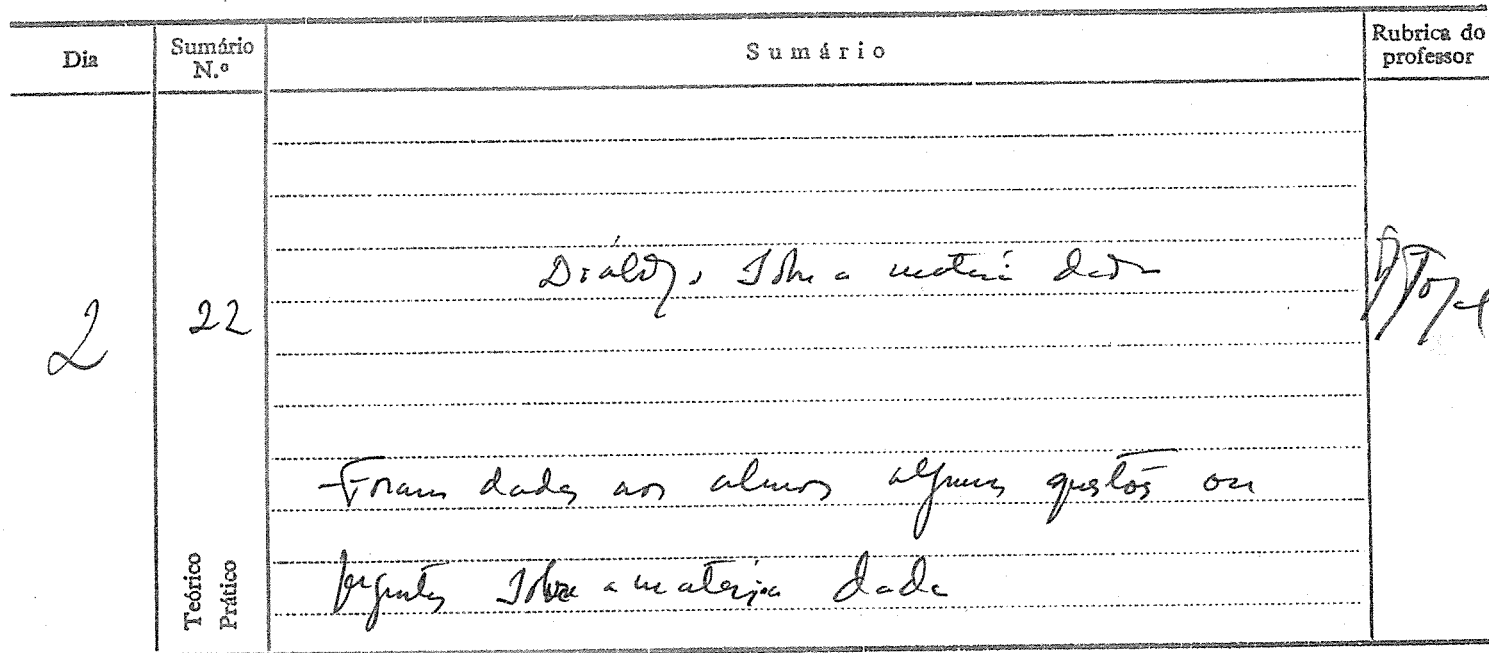 Dia
Sumário
N.º
Sumário
Rubrica do
professor
2
22
Diálogo sobre a matéria dada
Foram dadas aos alunos algumas questões ou
perguntas sobre a matéria dada
Teórico
Prático